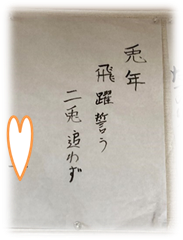 兎年
飛躍誓う
二兎追わず